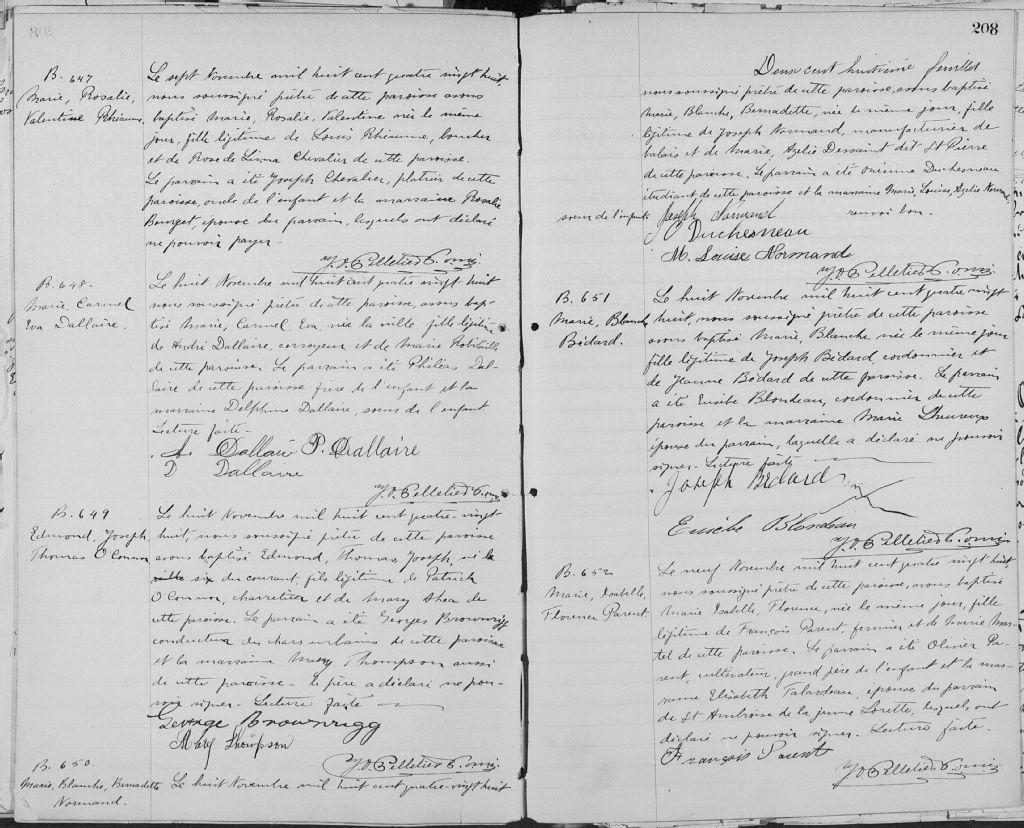 B. 647
Marie, Rosalie,
Valentine Rhéaume.
Le sept Novembre mil huit cent quatre vingt huit,
nous soussigné prêtre de cette paroisse avons
baptisé Marie, Rosalie, Valentine née le même
jour, fille légitime de Louis Rhéaume, boucher
et de Rose de Lima Chevalier de cette paroisse.
Le parrain a été Joseph Chevalier, platrier de cette
paroisse, oncle de l'enfant et la marraine Rosalie
Bourget, épouse du parrain, lesquels ont déclaré
ne pouvoir signer -
B. 648-
Marie Carmel
Eva Dallaire.
Le huit Novembre mil huit cent quatre vingt huit
nous soussigné prêtre de cette paroisse, avons bap-
tisé Marie, Carmel, Eva, née la veille fille légitime
de André Dallaire, corroyeur et de Marie Robitaille
de cette paroisse. Le parrain a été Philéas Dal-
laire de cette paroisse frère de l'enfant et la
marraine Delphine Dallaire, soeur de l'enfant
Lecture faite -
A. Dallaire P. Dallaire
D Dallaire
B. 649
Edmond, Joseph,
Thomas O'Connor
Le huit Novembre mil huit cent quatre-vingt
huit, nous soussigné prêtre de cette paroisse
avons baptisé Edmond, Thomas, Joseph, né le
veille six du courant, fils légitime de Patrick
O'Connor, charretier et de Mary Shea de
cette paroisse. Le parrain a été Georges Brownrigg
conducteur des chars urbains de cette paroisse
et la marraine Mary Thompson aussi
de cette paroisse - le père a déclaré ne pou-
voir signer - Lecture faite -
George Brownrigg
Mary Thompson
B. 650.
Marie, Blanche, Bernadette
Normand.
Le huit Novembre mil huit cent quatre-vingt huit
208
Deux cent huitième feuillet
nous soussigné prêtre de cette paroisse, avons baptisé
Marie, Blanche, Bernadette, née le même jour, fille
légitime de Joseph Normand, manufacturier de
balais et de Marie, Azélie Dessaint dit St Pierre
de cette paroisse. Le parrain a été Onésime Duchesneau
étudiant de cette paroisse et la marraine Marie, Louise, Azélie Normand,
soeur de l'enfant Joseph Normand renvoi bon.
O Duchesneau
M. Louise Normand
B. 651
Marie, Blanche
Bédard.
Le huit Novembre mil huit cent quatre vingt
huit, nous soussigné prêtre de cette paroisse
avons baptisé Marie, Blanche née le même jour
fille légitime de Joseph Bédard cordonnier et
de Jeanne Bédard de cette paroisse. Le parrain
a été Eusèbe Blondeau, cordonnier de cette
paroisse et la marraine Marie Lheureux
épouse du parrain, laquelle a déclaré ne pouvoir
signer - Lecture faite
Joseph Bédard
Eusèbe Blondeau
B. 652
Marie, Isabelle,
Florence Parent.
Le neuf Novembre mil huit cent quatre vingt huit
nous soussigné prêtre de cette paroisse, avons baptisé
Marie Isabelle, Florence, née le même jour, fille
légitime de François Parent, fermier et de Marie Mar-
tel de cette paroisse. Le parrain a été Olivier Pa-
rent, cultivateur, grand père de l'enfant et la mar-
raine Elisabeth Falardeau, épouse du parrain
de St Ambroise de la jeune Lorette, lesquels ont
déclaré ne pouvoir signer. Lecture faite.
François Parent